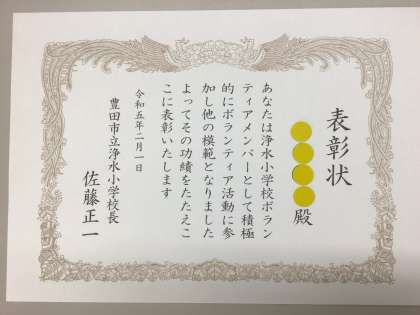 表彰状
殿
あなたは浄水小学校ボラン
ティアメンバーとして積極
的にボランティア活動に参
加し他の模範となりました
よってその功績をたたえこ
こに表彰いたします
令和五年二月一日
豊田市立浄水小学校長
佐藤正一